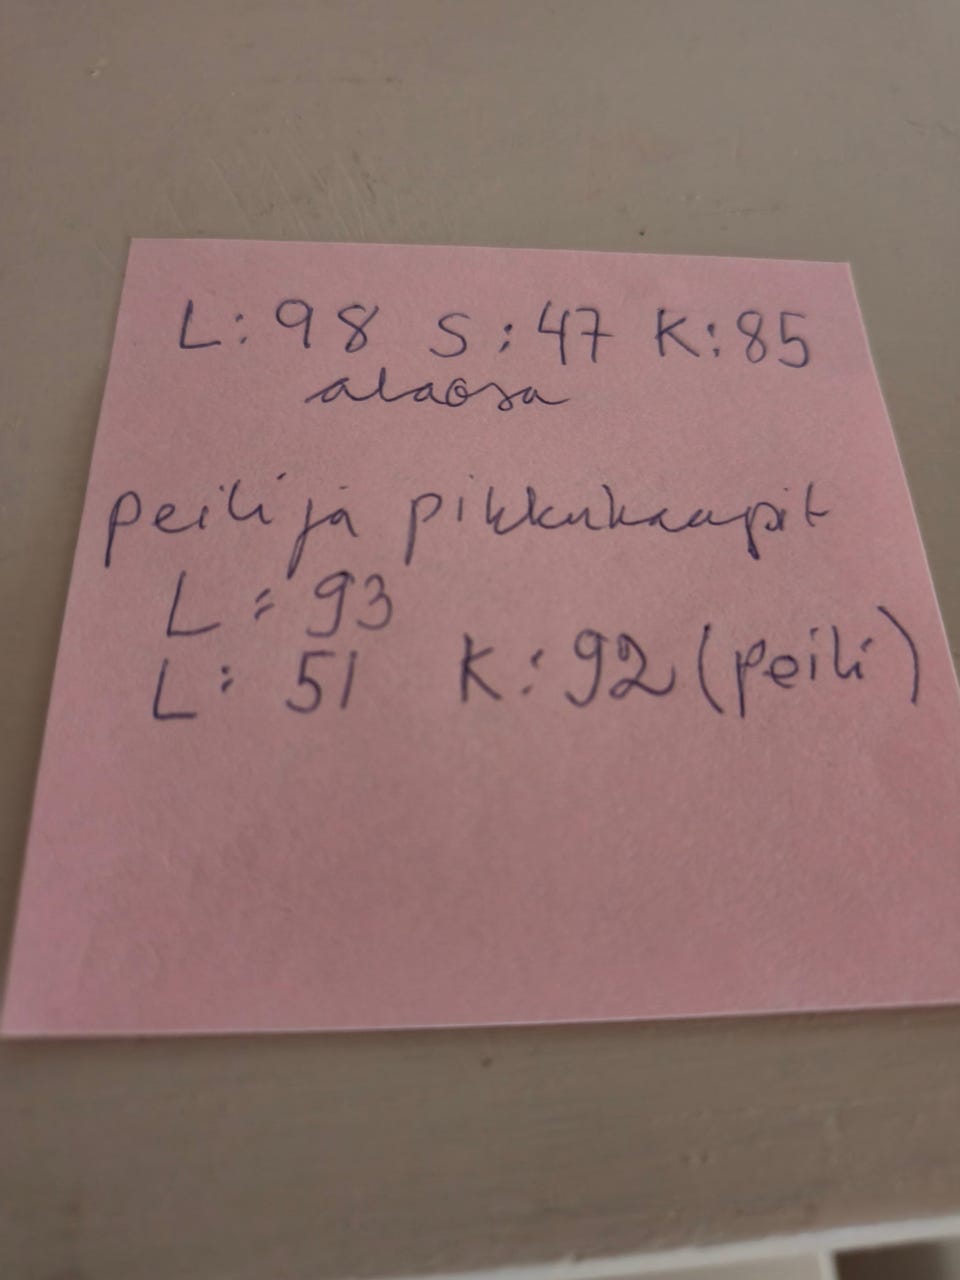 L: 98 S: 47 K: 85
alaosa
peili ja pikkukaapit
L: 93
L: 51 K: 92 (peili)